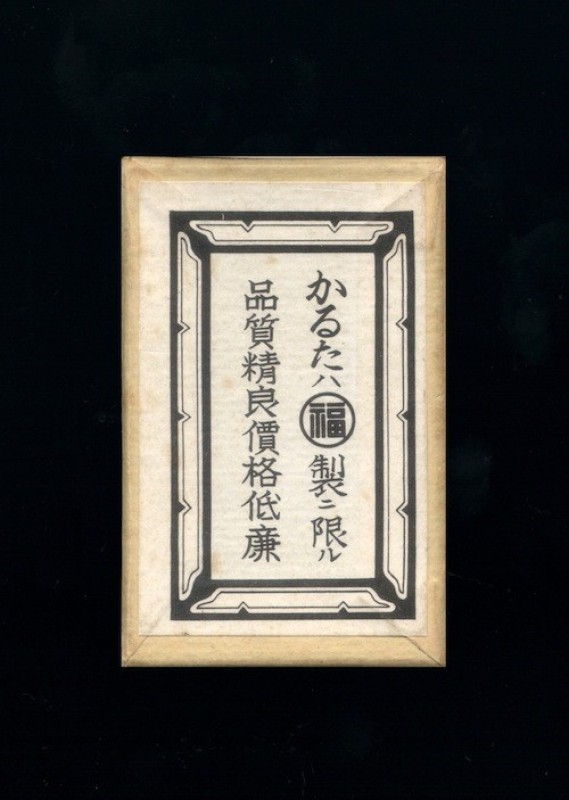 かるたハ福製ニ限ル
品質精良價格低廉